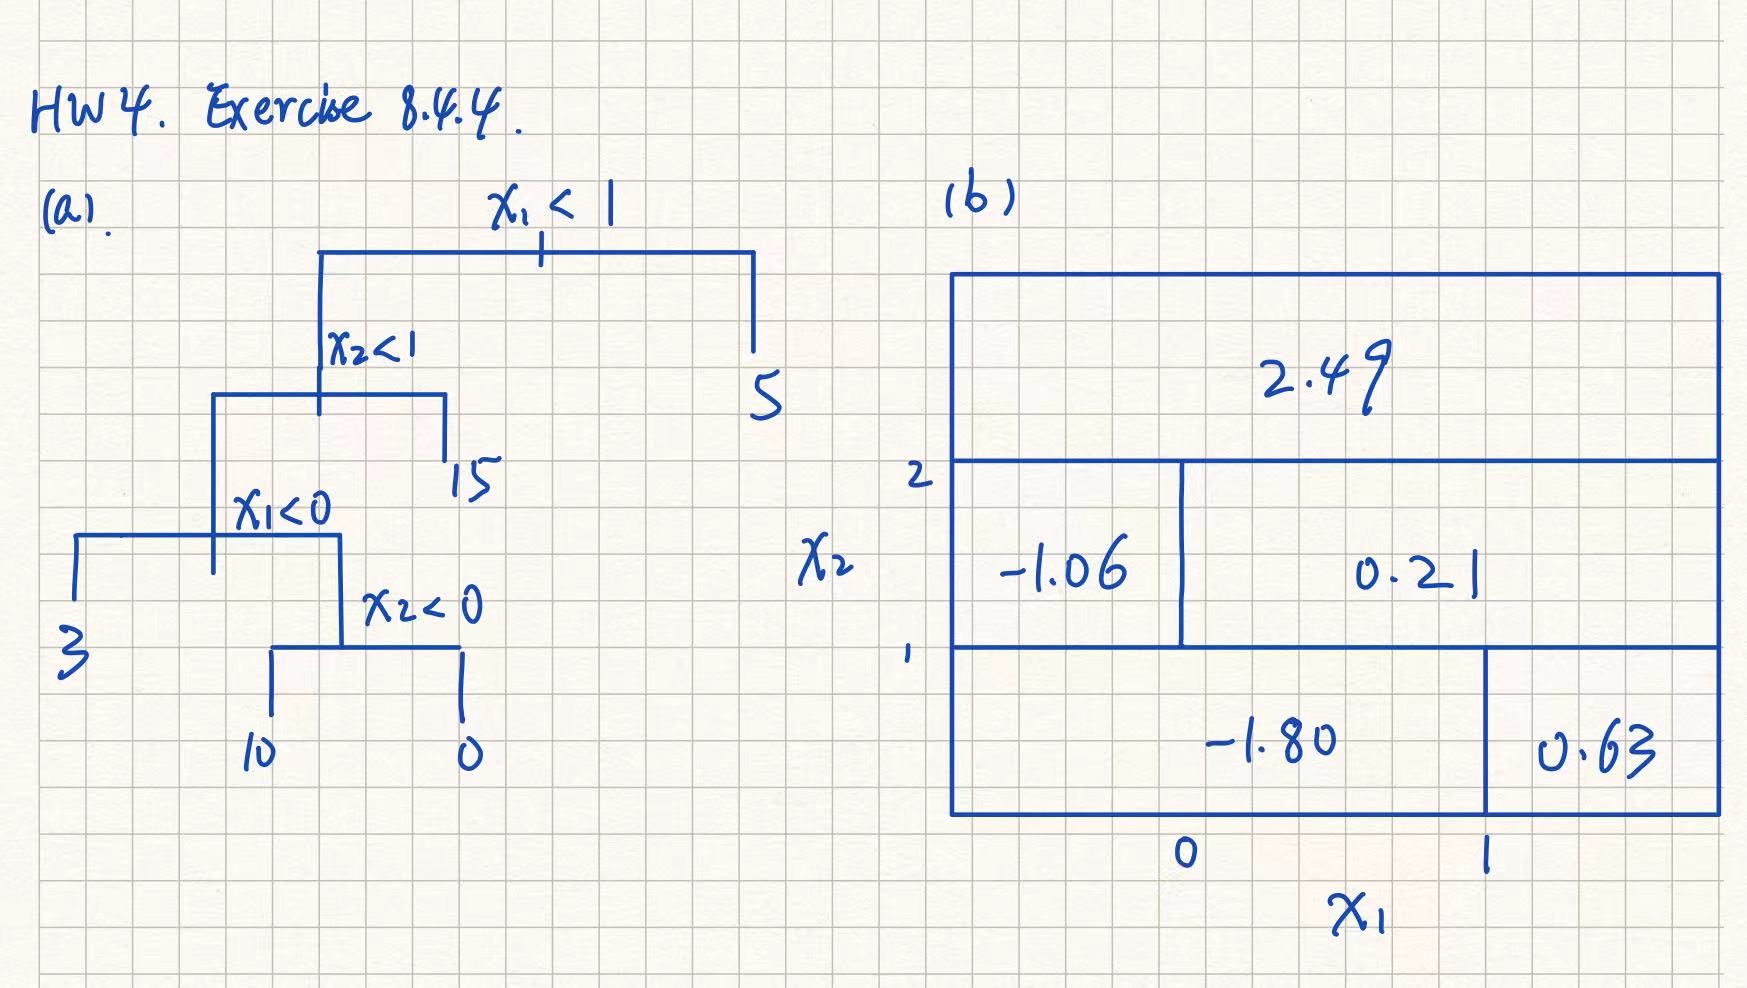 HW 4. Exercise 8.4.4.
(a).
x₁ < 1
x₂ < 1
5
15
x₁ < 0
3
x₂ < 0
10
0
(b)
2.49
2
x₂
-1.06
0.21
1
-1.80
0.63
0
1
x₁